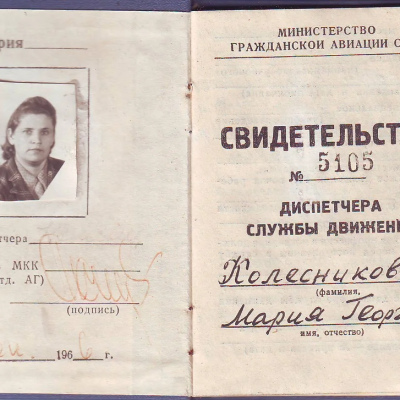 рия
тчера
МКК
тд. АГ)
(подпись)
1966 г.
МИНИСТЕРСТВО
ГРАЖДАНСКОЙ АВИАЦИИ С
СВИДЕТЕЛЬСТ
№ 5105
ДИСПЕТЧЕРА
СЛУЖБЫ ДВИЖЕН
Колесников
(фамилия,
Мария Геор
имя, отчество)